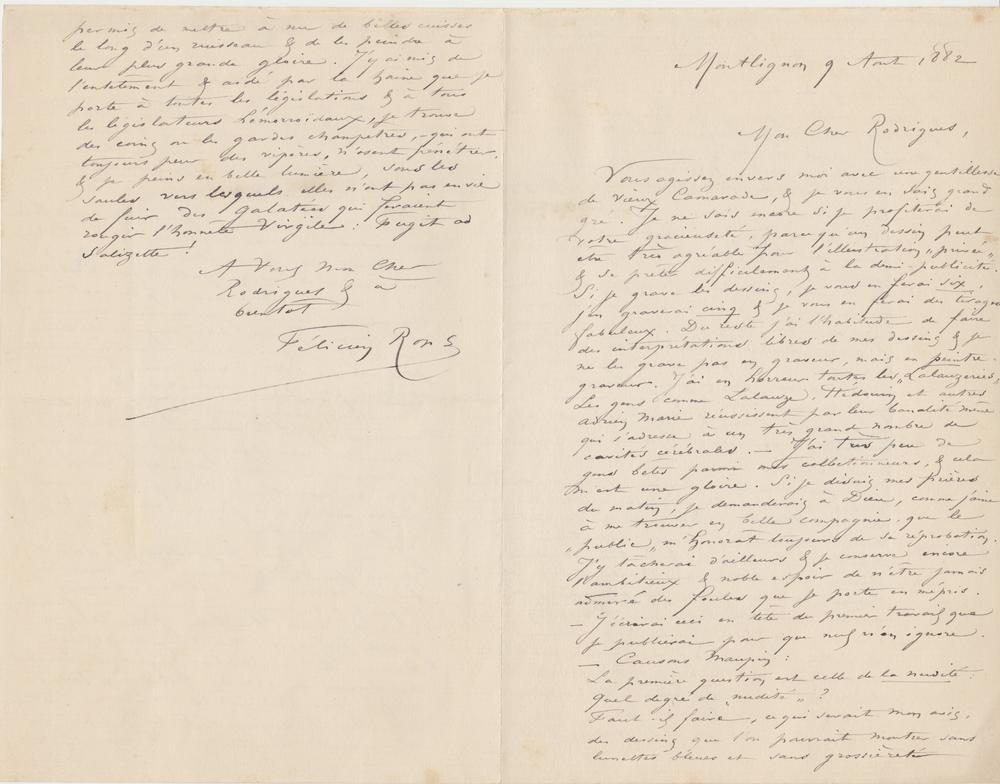 Montlignon 9 Aout 1882
Mon Cher Rodrigues,
Vous agissez envers moi avec une gentillesse
de vieux Camarade, & je vous en sais grand
gré. Je ne sais encore si je profiterai de
votre gracieuseté, parcequ'un dessin peut
etre très agréable pour l'illustration „prince„
& se prêter difficilement à la demi-publicité.
Si je grave les dessins, je vous en ferai six,
j'en graverai cinq & je vous en ferai des tirages
fabuleux. Du reste j'ai l'habitude de faire
des interprétations libres de mes dessins & je
ne les grave pas en graveur, mais en peintre-
graveur. J'ai en horreur toutes les „Lalauzeries„
Les gens comme Lalauze, Hédouin et autres
Adrien Marie réussissent par leur banalité même
qui s'adresse à un très grand nombre de
cavités cérébrales. — J'ai très peu de
gens bêtes parmi mes collectionneurs, & cela
m'est une gloire. Si je disais mes prières
du matin, je demanderais à Dieu, comme j'aime
à me trouver en belle compagnie, que le
„public„ m'honorât toujours de sa réprobation.
J'y tâcherai d'ailleurs & je conserve encore
l'ambitieux & noble espoir de n'être jamais
admiré des foules que je porte en mépris.
— J'écrirai ceci en tête du premier travail que
je publierai pour que nul n'en ignore.
— Causons Maupin :
La première question est celle de la nudité :
Quel degré de „nudité„ ?
Faut-il faire, ce qui serait mon avis,
des dessins que l'on pourrait montrer sans
lunettes bleues et sans grossièreté
permis de mettre à nu de belles cuisses
le long d'un ruisseau & de les peindre à
leur plus grande gloire. J'y ai mis de
l'entêtement & aidé par la haine que je
porte à toutes les législations & à tous
les législateurs hémorroïdaux, je trouve
des coins où les gardes champêtres, qui ont
toujours peur des vipères, n'osent pénétrer,
& je peins en belle lumière, sous les
saules vers lesquels elles n'ont pas envie
de fuir des Galatées qui feraient
rougir l'honnête Virgile : Fugit ad
Salizette !
A Vous Mon Cher
Rodrigues & à
bientot
Félicien Rops